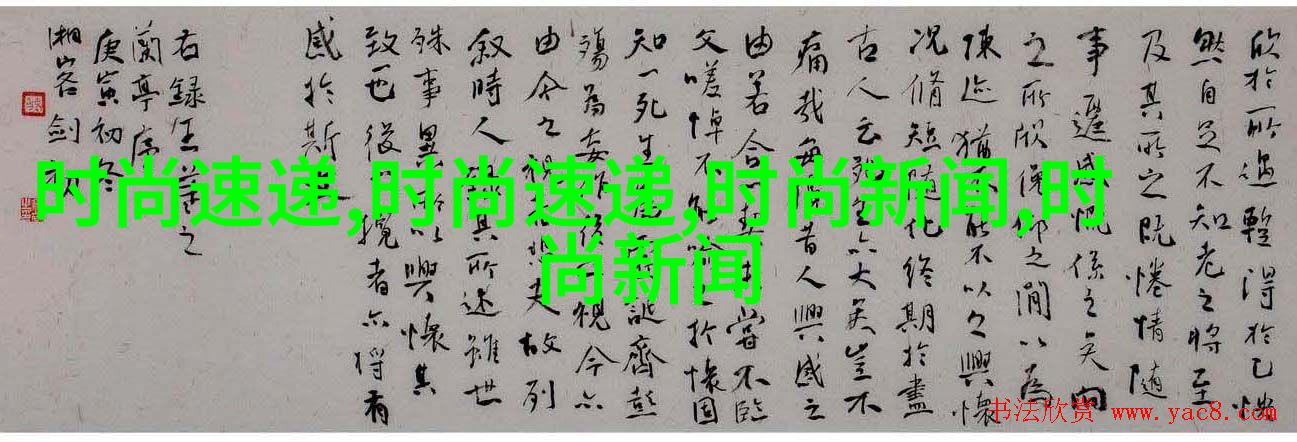 欣於所遇輒得於己快
然自足不知老之將至
及其所之既惓情隨
事遷感慨係之矣向
之所欣俛仰之間以為
陳迹猶不能不以之興懷
況脩短隨化終期於盡
古人云死生亦大矣豈不
痛哉每昔人興感之
由若合契嘗不臨
文嗟悼不能喻之於懷固
知一死生誕齊彭
殤為妄作後視今亦
由今之視夫故列
叙時人錄其所述雖世
殊事異所以興懷其
致一也後攬者亦將有
感於斯
右録王羲之
蘭亭序
庚寅初冬
湘客劍
时尚速递,时尚速递,时尚新闻,时
尚新闻
书法欣赏 www.yac8.com